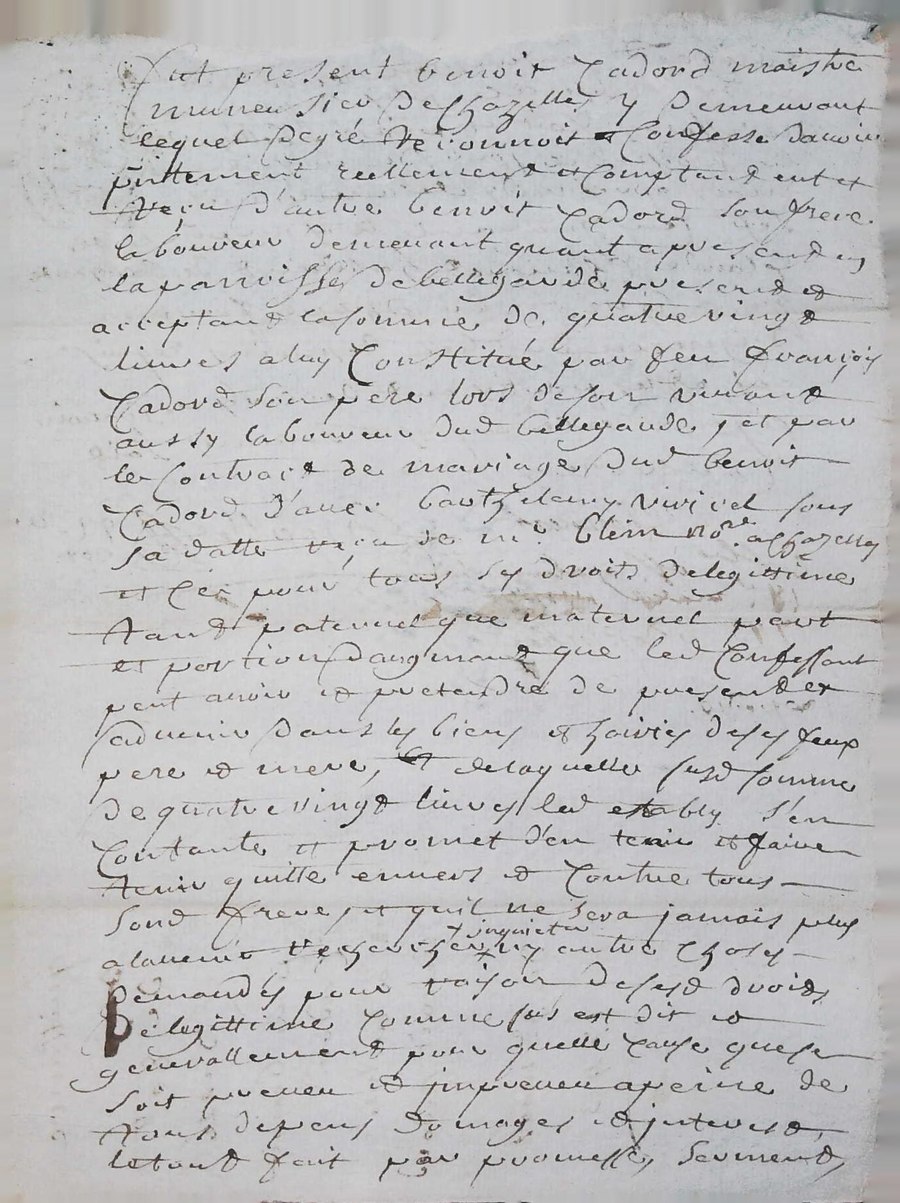 fut present benoit Cadord maistre
munensier de Chazelles y demeurant
lequel de gré reconnoit et confesse dauoir
pntement reellement et comptand eut et
reçu d'autre benoit Cadord son frere
laboureur demeurant quant a present en
la parroisse de bellegarde present et
acceptant la somme de quatre vingt
liures a luy constitué par feu françois
Cadord son pere lors de son viuant
aussy laboureur dud bellegarde, et par
le contract de mariage dud benoit
Cadord d'auec barthelemy viricel sous
sa datte reçu de mr blein nore a chazelles
et ce pour tous ses droits de legittime
tand paternel que maternel part
et portion d'augmant que led confessant
peut auoir et pretendre de present et
aduenir dans les biens et hoiries de ses feux
pere et mere, et de laquelle susd somme
de quatre vingt liures led estably s'en
contante et promet d'en tenir et faire
tenir quitte enuers et contre tous
sond frere, et quil ne sera jamais plus
a lauenir recherché + jnquieté ny autre choses
demandés pour raison de sesd droids
de legittime comme sus est dit et
generallement pour quelle cause que se
soit preueu et jmpreueu a peine de
tous depens domages et jnterest,
le tout fait par promesse, serment,